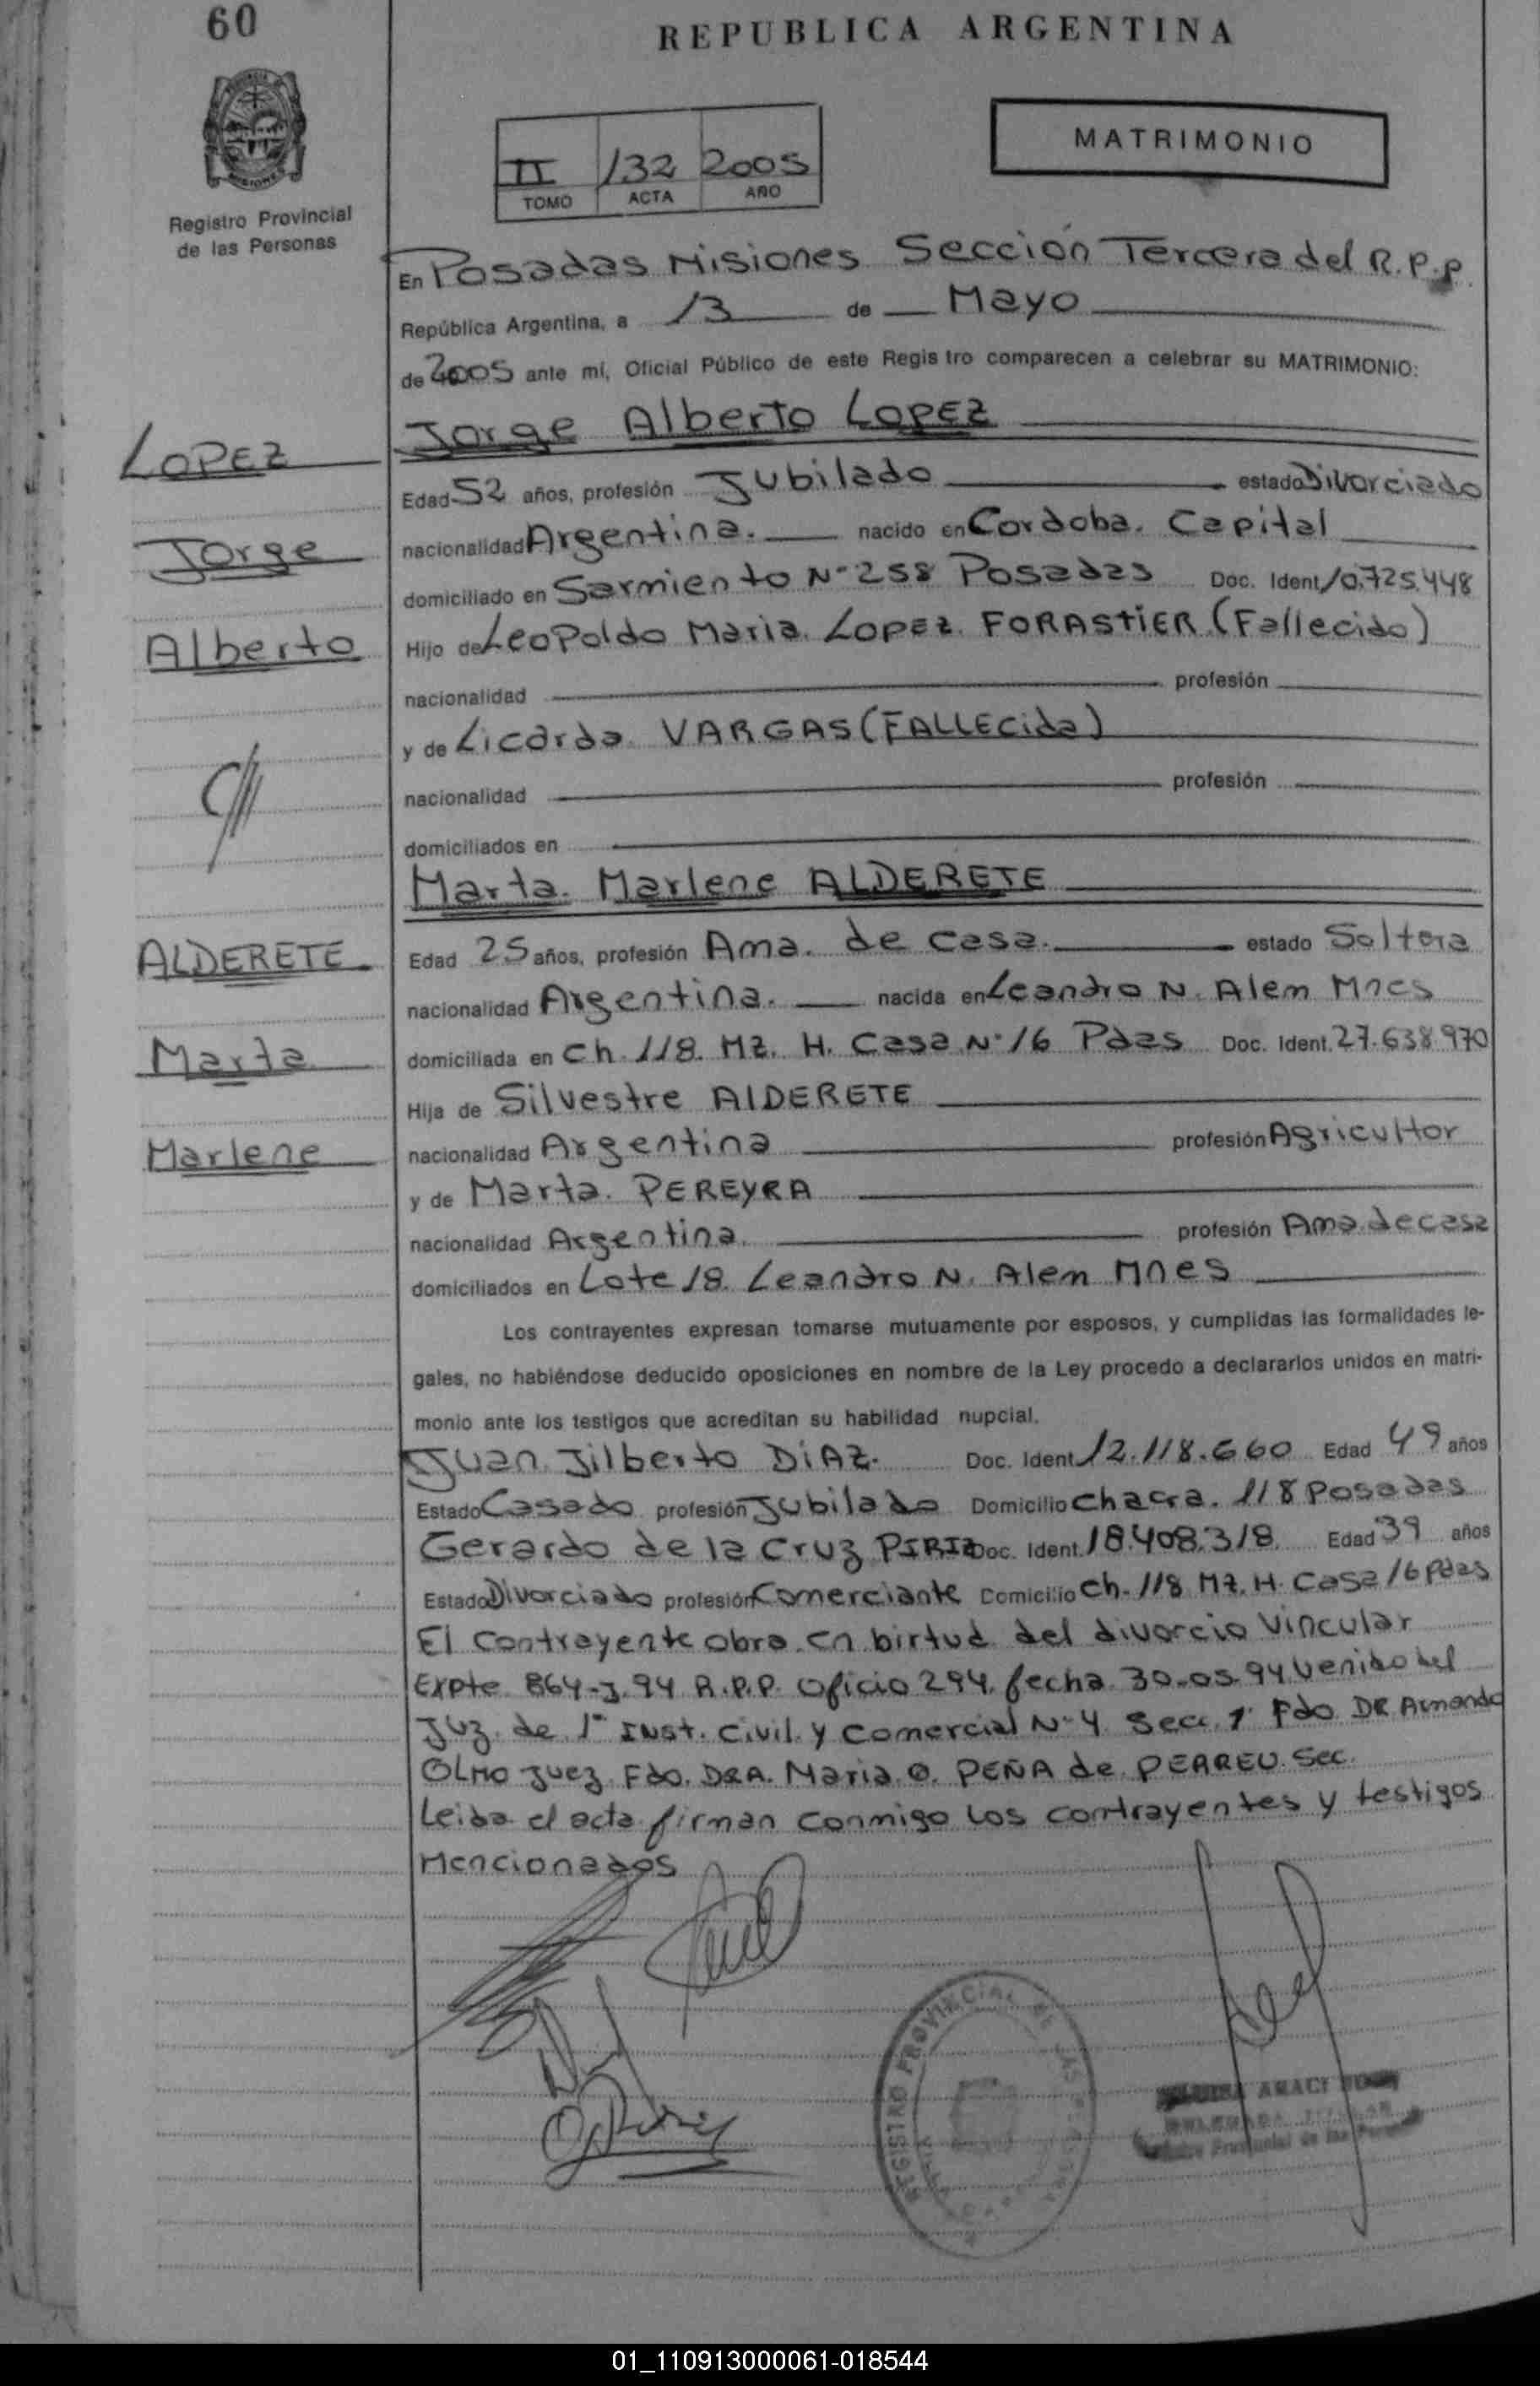 60
REPUBLICA ARGENTINA
MISIONES
Registro Provincial
de las Personas
II 132 2005
TOMO ACTA AÑO
MATRIMONIO
En Posadas Misiones Sección Tercera del R.P.P.
República Argentina, a 13 de Mayo
de 2005 ante mí, Oficial Público de este Regis tro comparecen a celebrar su MATRIMONIO:
LOPEZ
Jorge
Alberto
Jorge Alberto LOPEZ
Edad 52 años, profesión Jubilado estado Divorciado
nacionalidad Argentina. nacido en Cordoba. Capital
domiciliado en Sarmiento N° 258 Posadas Doc. Ident. 10.725.448
Hijo de Leopoldo Maria. LOPEZ. FORASTIER (Fallecido)
nacionalidad profesión
y de Licarda. VARGAS (FALLECida)
nacionalidad profesión
domiciliados en
ALDERETE
Marta
Marlene
Marta. Marlene ALDERETE
Edad 25 años, profesión Ama. de casa. estado Soltera
nacionalidad Argentina. nacida en Leandro N. Alem Mnes
domiciliada en Ch. 118. Mz. H. Casa N° 16 Pdas Doc. Ident. 27.638.970
Hija de Silvestre AlDERETE
nacionalidad Argentina profesión Agricultor
y de Marta. PEREYRA
nacionalidad Argentina. profesión Ama de casa
domiciliados en Lote 18. Leandro N. Alem Mnes
Los contrayentes expresan tomarse mutuamente por esposos, y cumplidas las formalidades le-
gales, no habiéndose deducido oposiciones en nombre de la Ley procedo a declararlos unidos en matri-
monio ante los testigos que acreditan su habilidad nupcial.
Juan Jilberto DiAZ. Doc. Ident. 12.118.660 Edad 49 años
Estado Casado profesión Jubilado Domicilio Chacra. 118 Posadas
Gerardo de la Cruz PIRIZ Doc. Ident. 18.408.318. Edad 39 años
Estado Divorciado profesión Comerciante Domicilio Ch. 118 Mz. H. Casa 16 Pdas
El Contrayente obra en birtud del divorcio Vincular
Expte 864-J.94 R.P.P. Oficio 294. fecha 30-05-94 Venido del
Juz. de 1° Inst. Civil y Comercial N° 4 Secc. 1° Fdo DR Armando
OLMO Juez Fdo. DRA. Maria O. PEÑA de PEARREU. Sec.
Leida el acta firman conmigo los contrayentes y testigos
Mencionados
REGISTRO PROVINCIAL DE LAS PERSONAS
01_110913000061-018544